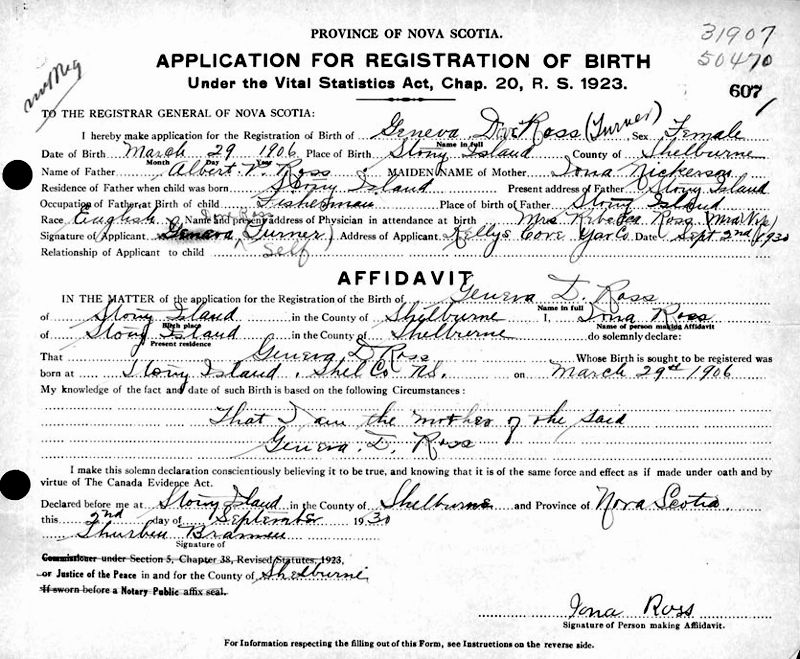 PROVINCE OF NOVA SCOTIA.
31907
50470
APPLICATION FOR REGISTRATION OF BIRTH
Under the Vital Statistics Act, Chap. 20, R. S. 1923.
607
TO THE REGISTRAR GENERAL OF NOVA SCOTIA:
I hereby make application for the Registration of Birth of Geneva Ross (Turner) Sex Female
Name in full
Date of Birth March 29 1906 Place of Birth Stony Island County of Shelburne
Month Day Year
Name of Father Albert V. Ross MAIDEN NAME of Mother Iona Nickerson
Residence of Father when child was born Stony Island Present address of Father Stony Island
Occupation of Father at Birth of child Fisherman Place of birth of Father Stony Island
Race English Name and present address of Physician in attendance at birth Mrs Rebecca Ross (Midwife)
Signature of Applicant Geneva Turner Address of Applicant Kellys Cove Yar Co Date Sept 2nd 1930
Relationship of Applicant to child Self
AFFIDAVIT
IN THE MATTER of the application for the Registration of the Birth of Geneva D. Ross
Name in full
of Stony Island in the County of Shelburne I, Iona Ross
Birth place Name of person making Affidavit
of Stony Island in the County of Shelburne do solemnly declare:
Present residence
That Geneva D Ross Whose Birth is sought to be registered was
born at Stony Island, Shel Co N.S. on March 29th 1906
My knowledge of the fact and date of such Birth is based on the following Circumstances:
That I am the mother of the said
Geneva. D. Ross
I make this solemn declaration conscientiously believing it to be true, and knowing that it is of the same force and effect as if made under oath and by
virtue of The Canada Evidence Act.
Declared before me at Stony Island in the County of Shelburne and Province of Nova Scotia.
this 2nd day of September 1930
Signature of
Commissioner under Section 5, Chapter 38, Revised Statutes, 1923,
or Justice of the Peace in and for the County of Shelburne
If sworn before a Notary Public affix seal.
Iona Ross
Signature of Person making Affidavit.
For Information respecting the filling out of this Form, see Instructions on the reverse side.